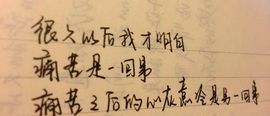 很久以后我才明白
痛苦是一回事
痛苦之后的以衣熹冷是另一回事